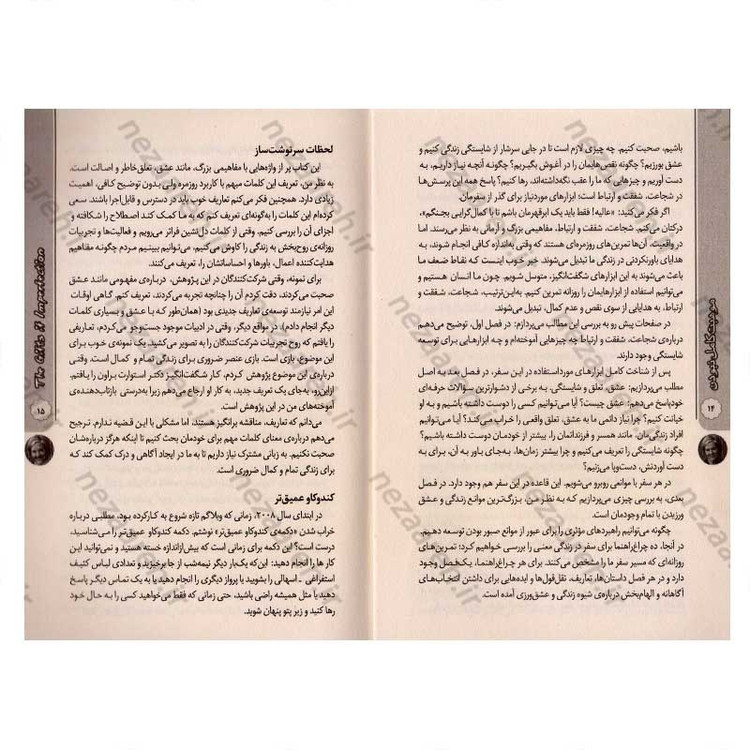 باشیم، صحبت کنیم. چه چیزی لازم است تا در جایی سرشار از شایستگی زندگی کنیم و
عشق بورزیم؟ چگونه نقص‌هایمان را در آغوش بگیریم؟ چگونه آنچه نیاز داریم، به
دست آوریم و چیزهایی که ما را عقب نگه‌داشته‌اند، رها کنیم؟ پاسخ همه این پرسش‌ها
در شجاعت، شفقت و ارتباط است؛ ابزارهای موردنیاز برای گذر از سفرمان.
اگر فکر می‌کنید: «عالیه! فقط باید یک ابرقهرمان باشم تا با کمال‌گرایی بجنگم»،
درکتان می‌کنم. شجاعت، شفقت و ارتباط، مفاهیمی بزرگ و آرمانی به نظر می‌رسند. اما
در واقعیت، آن‌ها تمرین‌های روزمره‌ای هستند که وقتی به‌اندازه کافی انجام شوند، به
هدایای باورنکردنی در زندگی ما تبدیل می‌شوند. خبر خوب اینست که نقاط ضعف ما
باعث می‌شوند به این ابزارهای شگفت‌انگیز، متوسل شویم. چون ما انسان هستیم و
می‌توانیم استفاده از ابزارهایمان را روزانه تمرین کنیم. به‌این‌ترتیب، شجاعت، شفقت و
ارتباط، به هدایایی از سوی نقص و عدم کمال، تبدیل می‌شوند.
در صفحات پیش رو به بررسی این مطالب می‌پردازیم: در فصل اول، توضیح می‌دهم
در مورد شجاعت، شفقت و ارتباط چه چیزهایی آموخته‌ام و چه ابزارهایی برای توسعه
شایستگی وجود دارند.
پس از شناخت کامل ابزارهای مورداستفاده در این سفر، در فصل بعد به اصل
مطلب می‌پردازیم: عشق، تعلق و شایستگی. به برخی از دشوارترین سؤالات حرفه‌ای
خودپاسخ می‌دهم: عشق چیست؟ آیا می‌توانیم کسی را دوست داشته باشیم و به او
خیانت کنیم؟ چرا نیاز دائمی ما به عشق، تعلق واقعی را خراب می‌کند؟ آیا می‌توانیم
افراد زندگی‌مان، مانند همسر و فرزندانمان را، بیشتر از خودمان دوست داشته باشیم؟
چگونه شایستگی را تعریف می‌کنیم و چرا بیشتر زمان‌ها، به‌جای باور به آن، برای به
دست آوردنش، دست‌وپا می‌زنیم؟
در هر سفر با موانعی روبرو می‌شویم. این قاعده در این سفر هم وجود دارد. در فصل
بعدی، به بررسی چیزی می‌پردازیم که به نظر من، بزرگ‌ترین موانع زندگی و عشق
ورزیدن با تمام وجودمان است.
چگونه می‌توانیم راهبردهای مؤثری را برای عبور از موانع صبور بودن توسعه دهیم.
در آنجا، ده چراغ‌راهنما برای سفر در زندگی معنی را بررسی خواهیم کرد؛ تمرین‌های
روزانه‌ای که مسیر سفر ما را مشخص می‌کنند. برای هر چراغ‌راهنما، یک‌فصل وجود
دارد و در هر فصل داستان‌ها، تعاریف، نقل‌قول‌ها و ایده‌هایی برای داشتن انتخاب‌های
آگاهانه و الهام‌بخش درباره‌ی شیوه زندگی و عشق‌ورزی آمده است.
موهبت کامل نبودن
۱۴
لحظات سرنوشت‌ساز
این کتاب پر از واژه‌هایی با مفاهیمی بزرگ، مانند عشق، تعلق‌خاطر و اصالت است.
به نظر من، تعریف این کلمات مهم با کاربرد روزمره ولی بدون توضیح کافی، اهمیت
زیادی دارد. همچنین فکر می‌کنم تعاریف خوب باید در دسترس و قابل‌اجرا باشند. سعی
کرده‌ام این کلمات را به‌گونه‌ای تعریف کنم که به ما کمک کند اصطلاح را شکافته و
اجزای آن را بررسی کنیم. وقتی از کلمات دل‌نشین فراتر می‌رویم و فعالیت‌ها و تجربیات
روزانه‌ی روح‌بخش به زندگی را کاوش می‌کنیم، می‌توانیم ببینیم مردم چگونه مفاهیم
هدایت‌کننده اعمال، باورها و احساساتشان را، تعریف می‌کنند.
برای نمونه، وقتی شرکت‌کنندگان در این پژوهش، درباره‌ی مفهومی مانند عشق
صحبت می‌کردند، دقت کردم آن را چنانچه تجربه می‌کردند، تعریف کنم. گاهی اوقات
این امر نیازمند توسعه‌ی تعاریف جدیدی بود (همان‌طور که با عشق و بسیاری کلمات
دیگر انجام دادم). در مواقع دیگر، وقتی در ادبیات موجود جست‌وجو می‌کردم، تعاریفی
را یافتم که روح تجربیات شرکت‌کنندگان را به تصویر می‌کشید. یک نمونه‌ی خوب برای
این موضوع، بازی است. بازی عنصر ضروری برای زندگی تمام و کمال است. وقتی
درباره‌ی این موضوع پژوهش کردم، کار شگفت‌انگیز دکتر استوارت براون را یافتم.
ازاین‌رو، به‌جای یک تعریف جدید، به کار او ارجاع می‌دهم زیرا به‌درستی بازتاب‌دهنده‌ی
آموخته‌های من در این پژوهش است.
می‌دانم که تعاریف، مناقشه برانگیز هستند، اما مشکلی با این قضیه ندارم. ترجیح
می‌دهم درباره‌ی معنای کلمات مهم برای خودمان بحث کنیم تا اینکه هرگز درباره‌شان
صحبت نکنیم. به زبانی مشترک نیاز داریم تا به ما در ایجاد آگاهی و درک کمک کند که
برای زندگی تمام و کمال ضروری است.
کندوکاو عمیق‌تر
در ابتدای سال ۲۰۰۸، زمانی که وبلاگم تازه شروع به کارکرده بود، مطلبی درباره
خراب شدن «دکمه‌ی کندوکاو عمیق‌تر» نوشتم. دکمه کندوکاو عمیق‌تر را می‌شناسید،
درست است؟ این دکمه برای زمانی که بیش‌ازاندازه خسته هستید و نمی‌توانید این
کار ها را انجام دهید: این‌که یک‌بار دیگر نیمه‌شب از جا برخیزید و تعدادی لباس کثیف
استفراغی ـ اسهالی را بشویید یا پرواز دیگری را انجام دهید یا به یک تماس دیگر پاسخ
دهید یا مثل همیشه راضی باشید، حتی زمانی که فقط می‌خواهید کسی را به حال خود
رها کنید و زیر پتو پنهان شوید.
The Gifts of Imperfection
۱۵
nezaareh.ir